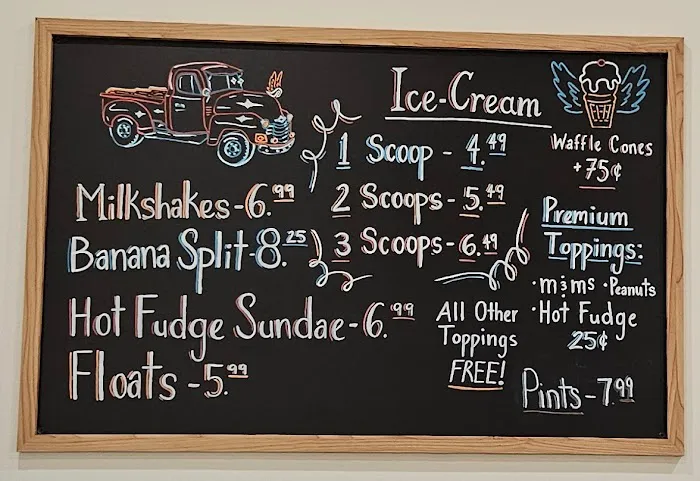 Milkshakes - 6.99
Banana Split - 8.25
Hot Fudge Sundae - 6.99
Floats - 5.99
Ice-Cream
1 Scoop - 4.49
2 Scoops - 5.49
3 Scoops - 6.49
All Other
Toppings
FREE!
Waffle Cones
+75¢
Premium
Toppings:
·m&ms ·Peanuts
·Hot Fudge
25¢
Pints - 7.99